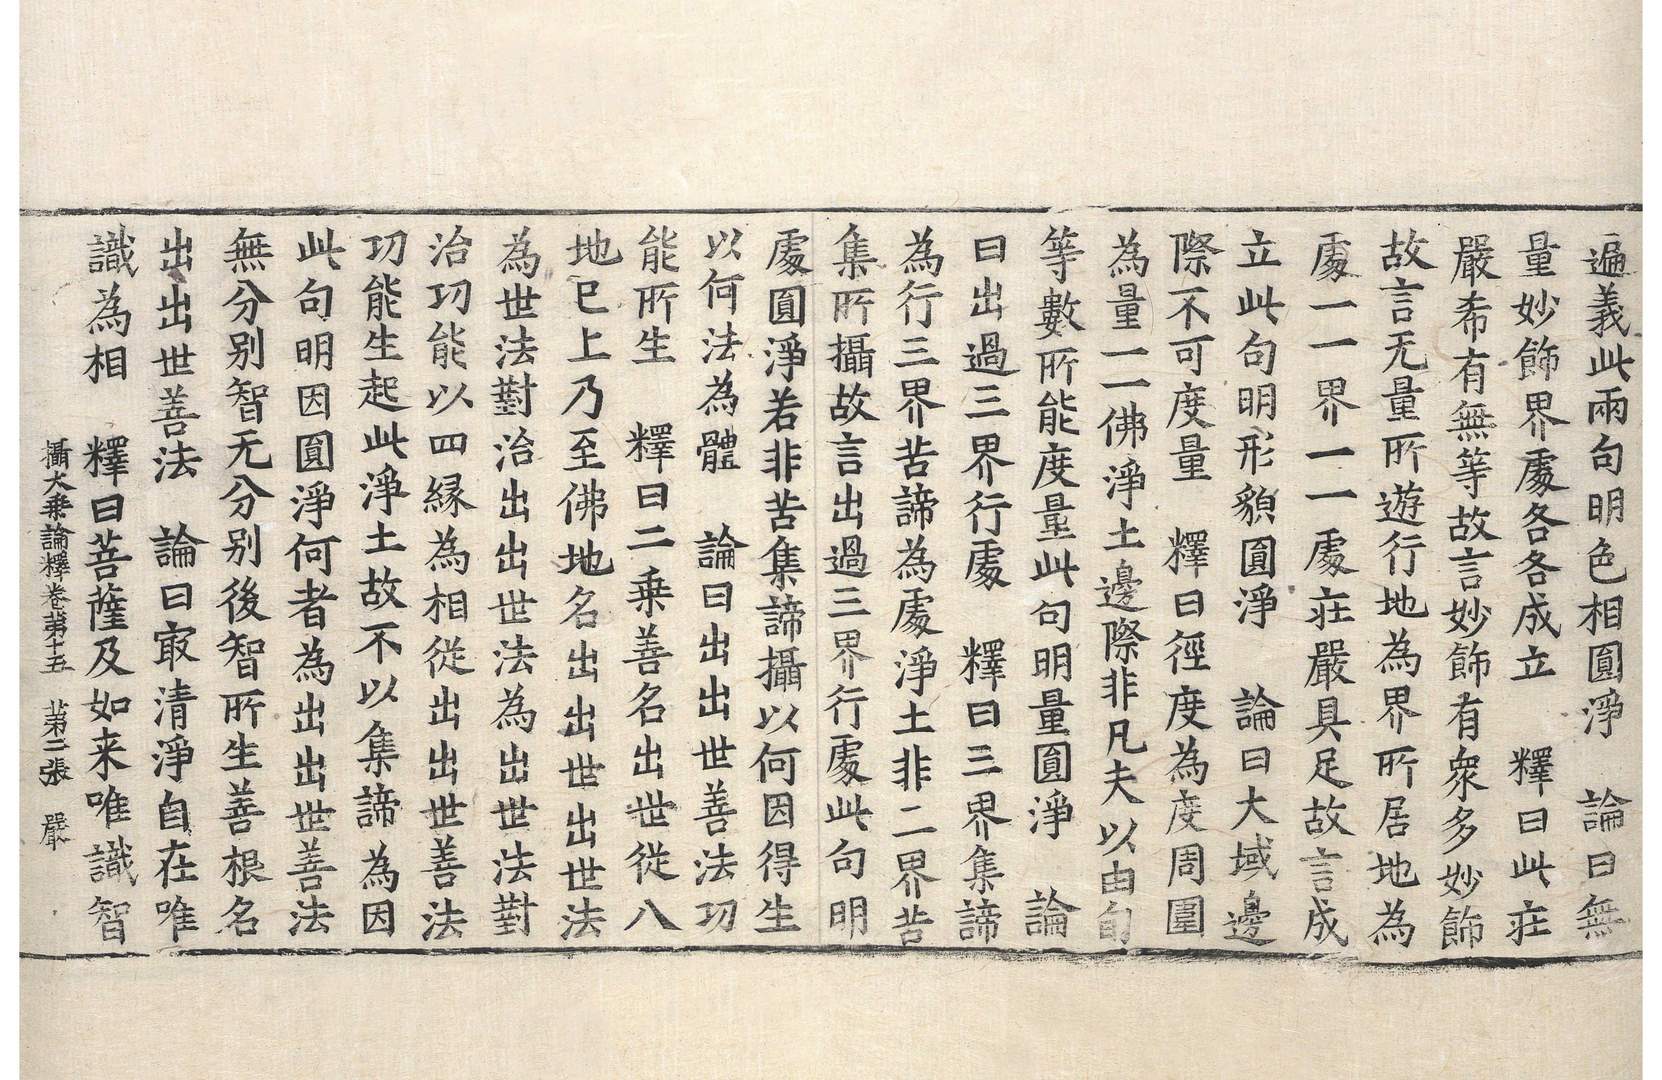 遍義此兩句明色相圓淨　論曰無
量妙飾界處各各成立　釋曰此莊
嚴希有無等故言妙飾有衆多妙飾
故言无量所遊行地為界所居地為
處一一界一一處莊嚴具足故言成
立此句明形貌圓淨　論曰大域邊
際不可度量　釋曰徑度為度周圍
為量一一佛淨土邊際非凡夫以由旬
等數所能度量此句明量圓淨　論
曰出過三界行處　釋曰三界集諦
為行三界苦諦為處淨土非二界苦
集所攝故言出過三界行處此句明
處圓淨若非苦集諦攝以何因得生
以何法為體　論曰出出世善法功
能所生　釋曰二乘善名出世從八
地已上乃至佛地名出出世出世法
為世法對治出出世法為出世法對
治功能以四緣為相從出出世善法
功能生起此淨土故不以集諦為因
此句明因圓淨何者為出出世善法
無分別智无分別後智所生善根名
出出世善法　論曰㝡清淨自在唯
識為相　釋曰菩薩及如来唯識智
攝大乘論釋卷第十五　第三張　嚴